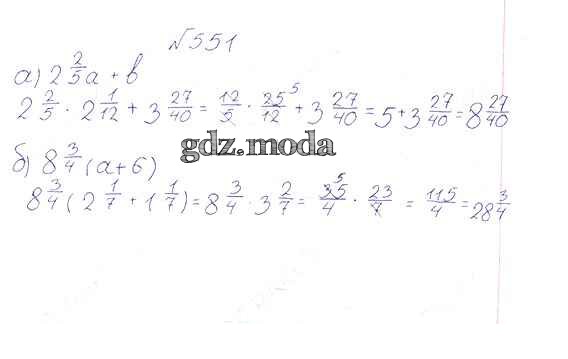 №551
а) 2 2/5 a + b
2 2/5 · 2 1/12 + 3 27/40 = 12/5 · 25/12 5 + 3 27/40 = 5 + 3 27/40 = 8 27/40
gdz.moda
б) 8 3/4 (a + б)
8 3/4 (2 1/7 + 1 1/7) = 8 3/4 · 3 2/7 = 35 5/4 · 23/7 = 115/4 = 28 3/4